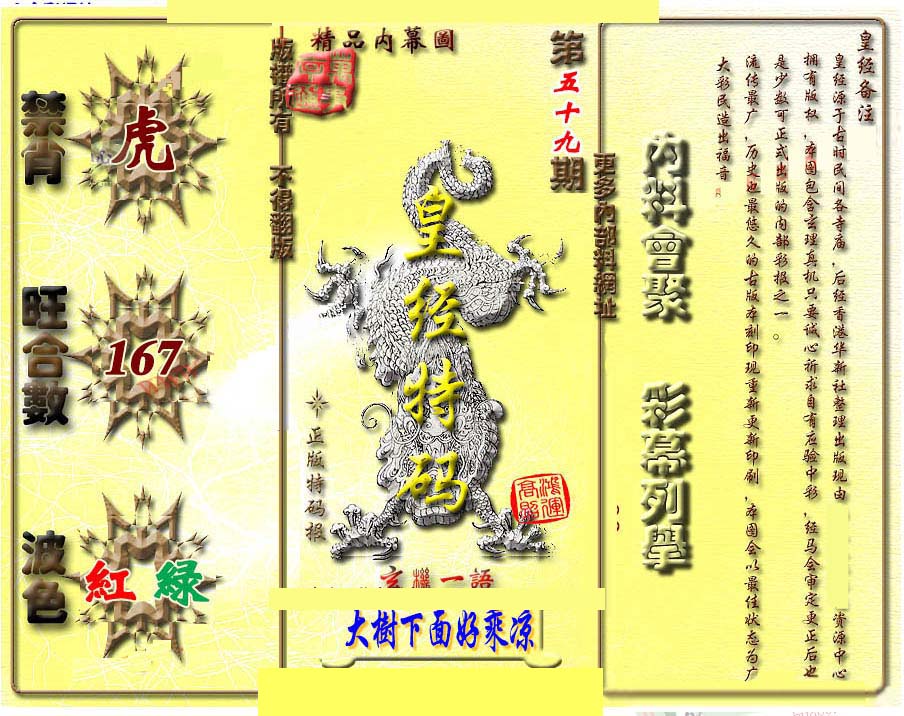 皇经备注
皇经源于古时民间各寺庙，后经香港华新社整理出版现由
资源中心
拥有版权，本图包含玄理真机只要诚心祈求自有应验中彩，经马会审定更正后也
是少数可正式出版的内部彩报之一。
流传最广，历史也最悠久的古版本刻印现重新更新印刷，本图会以最佳状态为广
大彩民造出福音
內料會聚
彩幕列舉
更多內部料網址
第五十九期
精品内幕圖
版權所有 不得翻版
皇经特码
正版特码报
鴻運
高照
玄機一語
大樹下面好乘凉
禁肖
虎
旺合數
167
波色
紅 綠